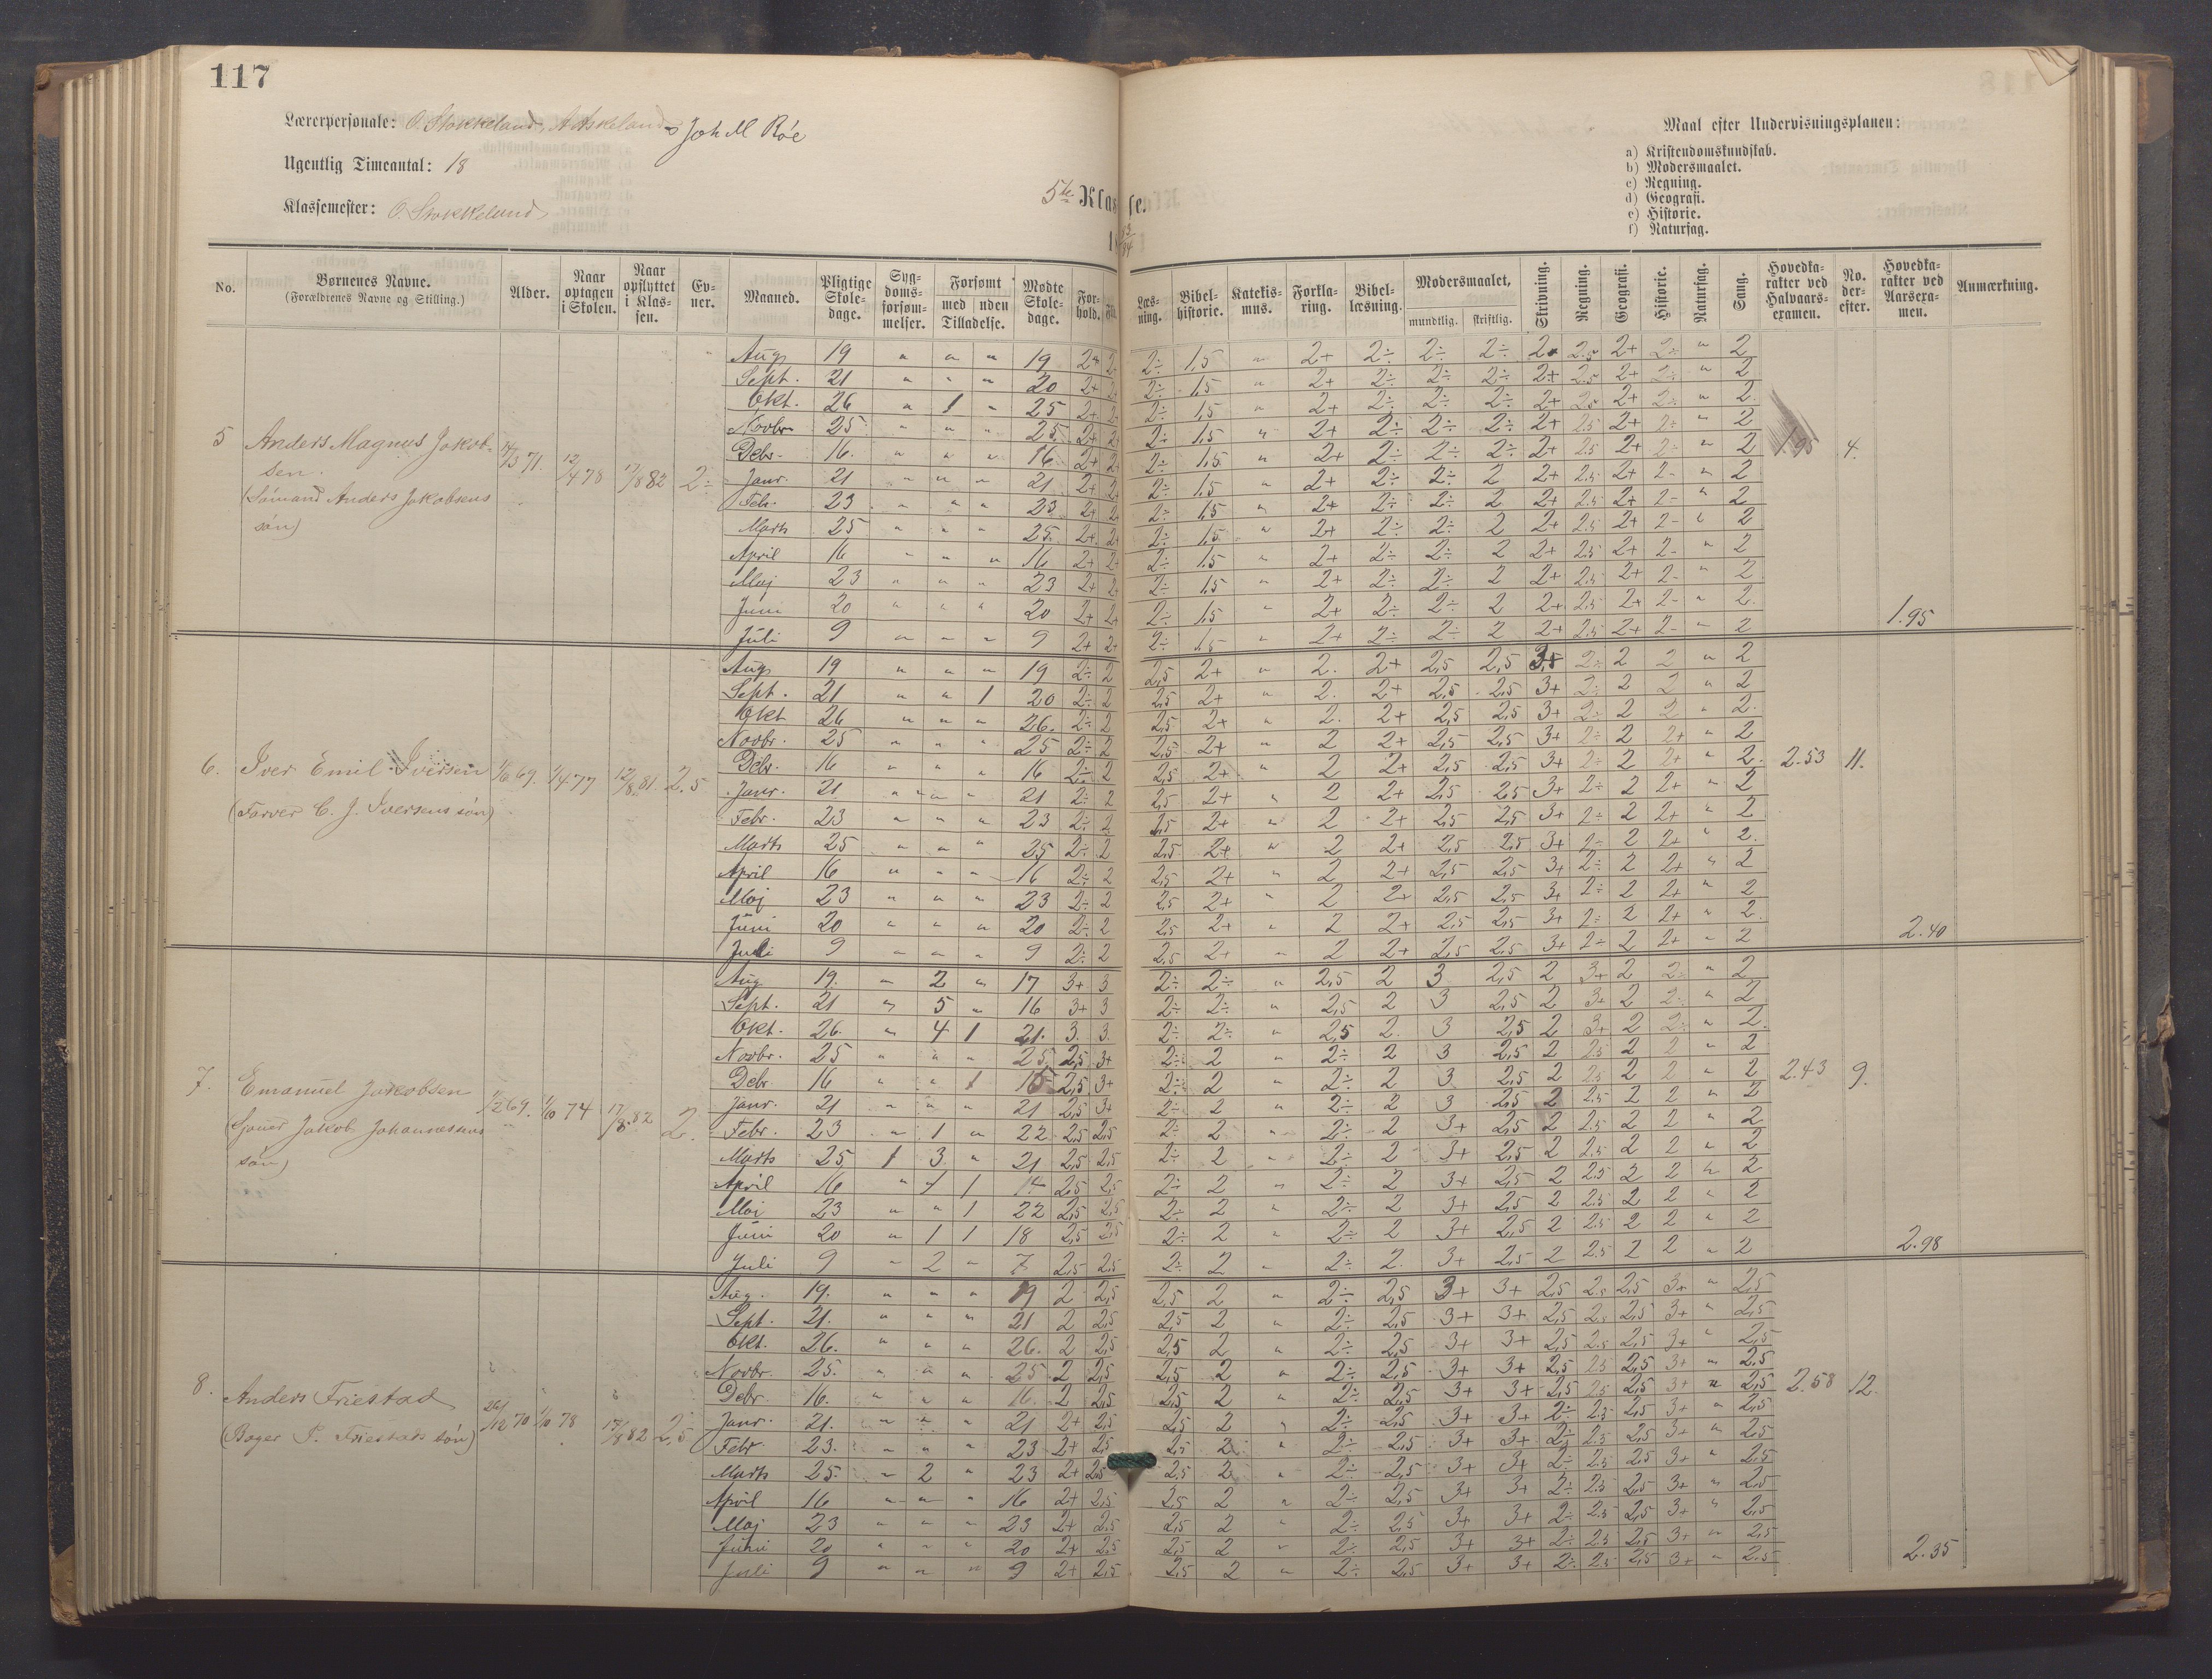 117
Lærerpersonale: O. Stokkeland, A. Askeland, Joh M Røe
Ugentlig Timeantal: 18
Klassemester: O. Stokkeland
5te Klasse.
18 83/84
Maal efter Undervisningsplanen:
a) Kristendomskundskab.
b) Modersmaalet.
c) Regning.
d) Geografi.
e) Historie.
f) Naturfag.
No. Børnenes Navne. (Forældrenes Navne og Stilling.) Alder. Naar optagen i Skolen. Naar opflyttet i Klassen. Evner. Maaned. Pligtige Skoledage. Sygdomsforsømmelser. Forsømt med uden Tilladelse. Mødte Skoledage. Forhold. Læsning. Bibelhistorie. Katekismus. Forklaring. Bibellæsning. Modersmaalet, mundtlig. skriftlig. Skrivning. Regning. Geografi. Historie. Naturfag. Sang. Hovedkarakter ved Halvaarsexamen. No. derefter. Hovedkarakter ved Aarsexamen. Anmærkning.
Aug. 19 " " " 19 2+ 2÷ 2÷ 1,5 " 2+ 2÷ 2÷ 2÷ 2+ 2.5 2+ 2÷ " 2
Sept. 21 " " " 20 2+ 2÷ 2÷ 1,5 " 2+ 2÷ 2÷ 2÷ 2+ 2.5 2+ 2÷ " 2
Okt. 26 " 1 " 25 2+ 2÷ 2÷ 1,5 " 2+ 2÷ 2÷ 2÷ 2+ 2.5 2+ 2÷ " 2
Novbr. 25 " " " 25 2+ 2+ 2÷ 1,5 " 2+ 2÷ 2÷ 2÷ 2+ 2.5 2+ 2÷ " 2
5 Anders Magnus Jakobsen. 14/3 71. 12/4 78 17/8 82 2÷ Debr. 16. " " " 16 2+ 2+ 2÷ 1,5 " 2+ 2÷ 2÷ 2÷ 2+ 2.5 2+ 2÷ " 2 1.95 4.
(Sømand Anders Jakobsens søn)
Janr. 21 " " " 21 2+ 2+ 2÷ 1,5 " 2+ 2÷ 2÷ 2 2+ 2.5 2+ 2- " 2
Febr. 23 " " " 23 2+ 2+ 2÷ 1,5 " 2+ 2÷ 2÷ 2 2+ 2.5 2+ 2- " 2
Marts 25 " " " 25 2+ 2+ 2÷ 1,5 " 2+ 2÷ 2÷ 2 2+ 2.5 2+ 2- " 2
April 16 " " " 16 2+ 2+ 2÷ 1.5 " 2+ 2÷ 2÷ 2 2+ 2.5 2+ 2- " 2
Maj 23 " " " 23 2+ 2+ 2÷ 1,5 " 2+ 2÷ 2÷ 2 2+ 2.5 2+ 2- " 2
Juni 20 " " " 20 2+ 2+ 2÷ 1,5 " 2+ 2÷ 2÷ 2 2+ 2.5 2+ 2- " 2
Juli 9 " " " 9 2+ 2+ 2÷ 1.5 " 2+ 2÷ 2÷ 2 2+ 2.5 2+ 2- " 2 1.95
Aug. 19 " " " 19 2÷ 2 2,5 2+ " 2. 2+ 2,5 2,5 3+ 2÷ 2 2 " 2
Sept. 21 " " 1 20 2÷ 2 2,5 2+ " 2. 2+ 2,5 2,5 3+ 2÷ 2 2 " 2
Okt 26 " " " 26. 2÷ 2 2,5 2+ " 2. 2+ 2,5 2,5 3+ 2÷ 2 2 " 2.
Novbr. 25 " " " 25 2÷ 2 2,5 2+ " 2 2+ 2,5 2,5 3+ 2÷ 2 2+ " 2
6. Iver Emil Iversen 1/6 69. 1/4 77 12/8 81. 2.5 Debr. 16 " " " 16 2÷ 2 2,5 2+ " 2 2+ 2,5 2,5 3+ 2÷ 2 2+ " 2. 2.53 11.
(Farver C. J. Iversens søn)
Janr. 21 " " " 21 2÷ 2 2,5 2+ " 2 2+ 2,5 2,5 3+ 2÷ 2 2+ " 2
Febr. 23 " " " 23 2÷ 2 2,5 2+ " 2 2+ 2,5 2,5 3+ 2÷ 2 2+ " 2
Marts 25 " " " 25 2÷ 2 2,5 2+ " 2 2+ 2,5 2,5 3+ 2÷ 2 2+ " 2.
April 16 " " " 16 2÷ 2 2,5 2+ " 2 2+ 2,5 2,5 3+ 2÷ 2 2+ " 2
Maj 23 " " " 23 2÷ 2 2,5 2+ " 2 2+ 2,5 2,5 3+ 2÷ 2 2+ " 2
Juni 20 " " " 20 2÷ 2 2,5 2+ " 2 2+ 2,5 2,5 3+ 2÷ 2 2+ " 2
Juli 9 " " " 9 2÷ 2 2,5 2+ " 2 2+ 2,5 2,5 3+ 2÷ 2 2+ " 2 2.40
Aug 19. " 2 " 17 3+ 3 2÷ 2÷ " 2,5 2 3 2,5 2 3+ 2 2÷ " 2
Sept. 21 " 5 " 16 3+ 3 2÷ 2÷ " 2,5 2 3 2,5 2 3+ 2 2÷ " 2
Okt. 26. " 4 1 21. 3. 3. 2÷ 2÷ " 2,5 2. 3 2,5 2 3+ 2 2÷ " 2.
Novbr. 25 " " " 25 2,5 3+ 2÷ 2 " 2÷ 2 3 2,5 2 2.5 2 2 " 2
7. Emanuel Jakobsen 1/2 69. 1/10 74 17/8 82 2. Debr. 16 " " 1 15 2,5 3+ 2÷ 2 " 2÷ 2 3 2,5 2 2.5 2 2 " 2 2.43 9.
(Jakob Johannessens søn)
Janr. 21 " " " 21 2,5 3+ 2÷ 2 " 2÷ 2 3 2,5 2 2.5 2 2 " 2
Febr. 23 " 1 " 22 2,5 2,5 2÷ 2 " 2÷ 2 3+ 2,5 2 2.5 2 2 " 2
Marts 25 1 3 " 21 2,5 2,5 2÷ 2 " 2÷ 2 3+ 2,5 2 2.5 2 2 " 2
April 16 " 1 1 14 2,5 2,5 2÷ 2 " 2÷ 2 3+ 2,5 2 2.5 2 2 " 2
Maj 23 " " 1 22 2,5 2,5 2÷ 2 " 2÷ 2 3+ 2,5 2 2.5 2 2 " 2
Juni 20 " 1 1 18 2,5 2,5 2÷ 2 " 2÷ 2 3+ 2,5 2 2.5 2 2 " 2
Juli 9 " 2 " 7 2,5 2,5 2÷ 2 " 2÷ 2. 3+ 2,5 2 2.5 2 2 " 2 2.98
Aug. 19. " " " 19 2 2,5 2,5 2 " 2÷ 2,5 3+ 3+ 2,5 2.5 2,5 3+ " 2,5
Sept. 21. " " " 21 2 2,5 2,5 2 " 2÷ 2,5 3+ 3+ 2,5 2.5 2,5 3+ " 2,5
Okt. 26. " " " 26. 2 2,5 2,5 2 " 2÷ 2,5 3+ 3+ 2,5 2.5 2,5 3+ " 2,5
Novbr. 25. " " " 25 2 2,5 2,5 2 " 2÷ 2,5 3+ 3+ 2,5 2.5 2,5 3+ " 2,5
8. Anders Friestad 26/12 70 1/10 78 17/8 82 2,5 Debr. 16. " " " 16. 2 2,5 2,5 2 " 2÷ 2,5 3+ 3+ 2,5 2.5 2,5 3+ " 2,5 2.58 12.
(Bager P. Friestads søn)
Janr. 21. " " " 21 2+ 2,5 2,5 2 " 2÷ 2,5 3+ 3+ 2÷ 2.5 2,5 3+ " 2,5
Febr 23. " " " 23 2+ 2,5 2,5 2 " 2÷ 2,5 3+ 3+ 2÷ 2.5 2,5 3+ " 2,5
Marts 25. " 2 " 23 2+ 2,5 2,5 2 " 2÷ 2,5 3+ 3+ 2÷ 2.5 2,5 3+ " 2,5
April 16 " " " 16 2+ 2,5 2,5 2 " 2÷ 2,5 3+ 3+ 2÷ 2.5 2,5 3+ " 2,5
Maj 23 " " " 23 2+ 2,5 2,5 2 " 2÷ 2,5 3+ 3+ 2÷ 2.5 2,5 3+ " 2,5
Juni 20 " " " 20 2+ 2,5 2,5 2 " 2÷ 2,5 3+ 3+ 2÷ 2.5 2,5 3+ " 2,5
Juli 9 " " " 9 2+ 2,5 2,5 2 " 2÷ 2,5 3+ 3+ 2÷ 2.5 2,5 3+ " 2.5 2.35